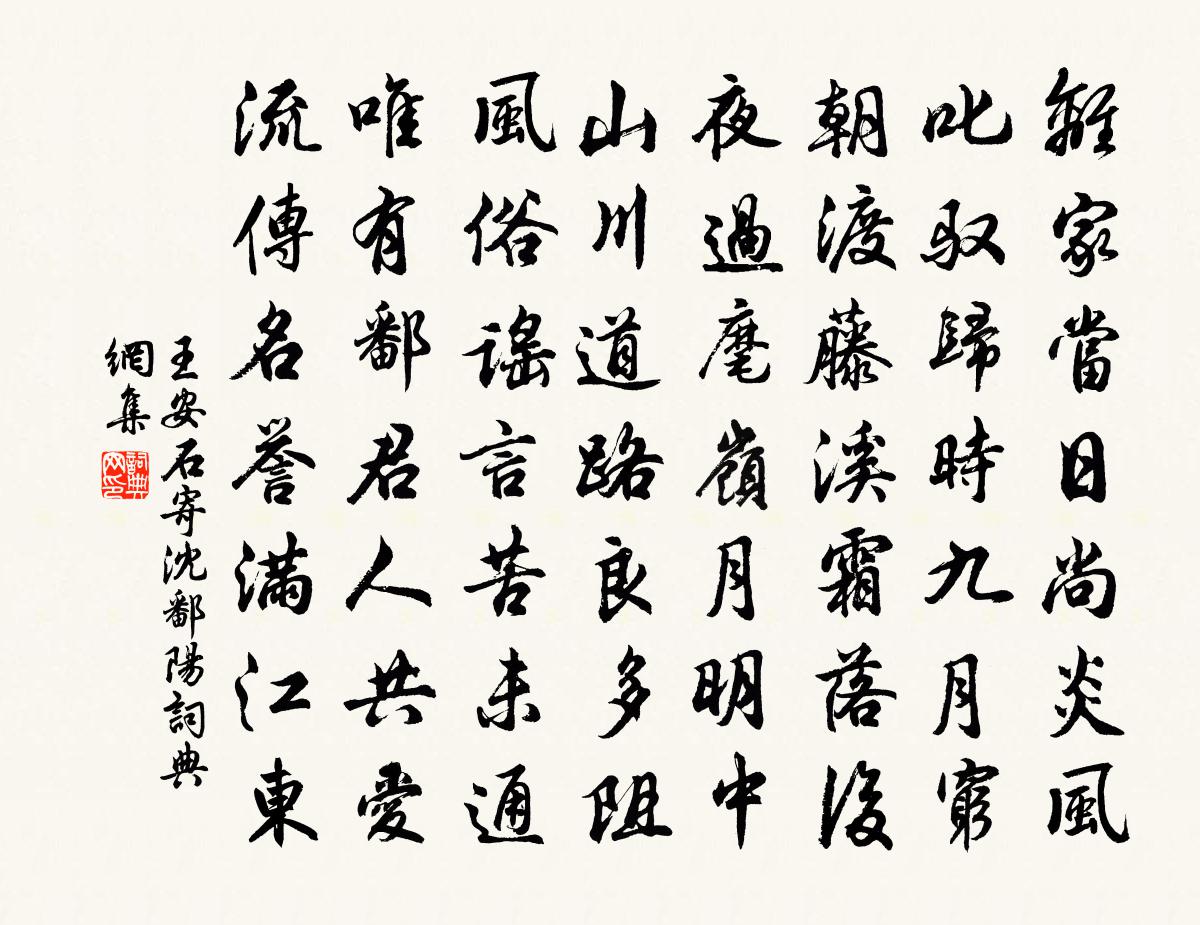 離家當日尚炎風
叱馭歸時九月窮
朝渡藤溪霜落後
夜過麾嶺月明中
山川道路良多阻
風俗謠言苦未通
唯有鄱君人共愛
流傳名譽滿江東
王安石寄沈鄱陽詞典
網集
詞典网印